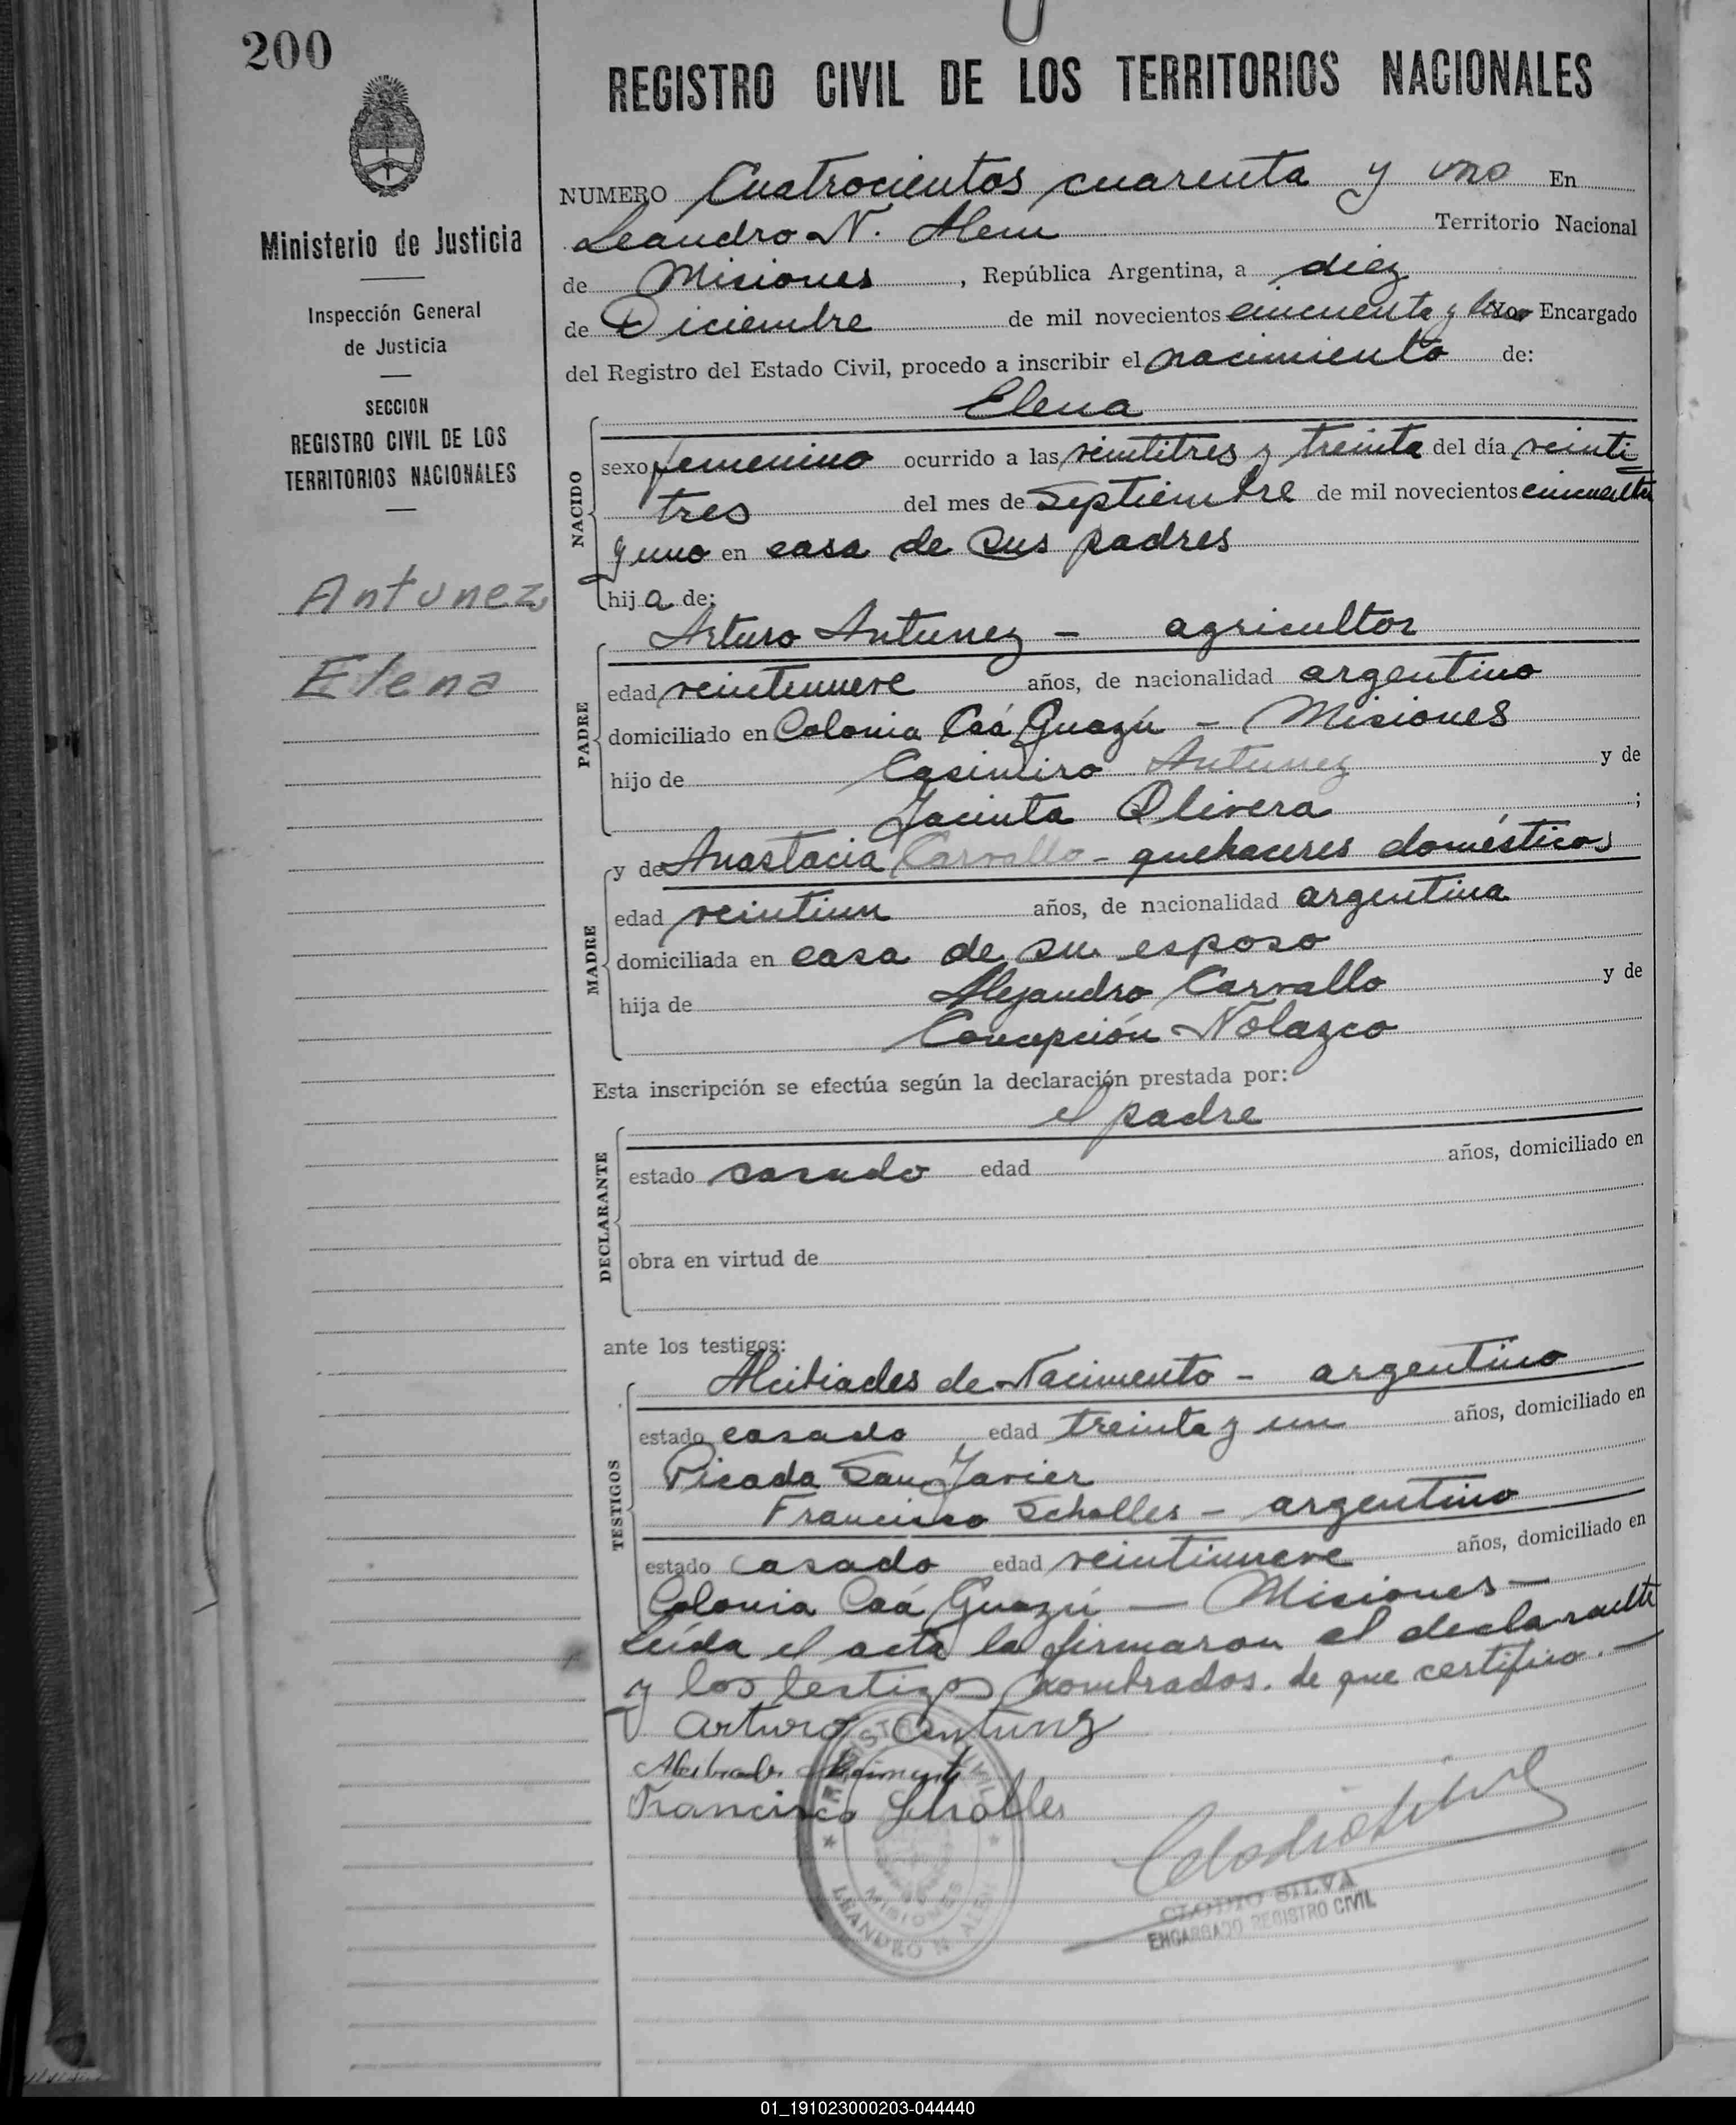 200
REGISTRO CIVIL DE LOS TERRITORIOS NACIONALES
Ministerio de Justicia
Inspección General
de Justicia
SECCION
REGISTRO CIVIL DE LOS
TERRITORIOS NACIONALES
Antunez
Elena
NUMERO Cuatrocientos cuarenta y uno En
Leandro N. Alem Territorio Nacional
de Misiones, República Argentina, a diez
de Diciembre de mil novecientos cincuenta y Yo, Encargado
del Registro del Estado Civil, procedo a inscribir el nacimiento de:
Elena
NACIDO
sexo femenino ocurrido a las veintitres y treinta del día veinti
tres del mes de Septiembre de mil novecientos cincuenta
y uno en casa de sus padres
hija de:
PADRE
Arturo Antunez - agricultor
edad veintinueve años, de nacionalidad argentino
domiciliado en Colonia Caá Guazú - Misiones
hijo de Casimiro Antunez y de
Jacinta Olivera ;
MADRE
y de Anastacia Carvallo - quehaceres domésticos
edad veintiun años, de nacionalidad argentina
domiciliada en casa de su esposo
hija de Alejandro Carvallo y de
Concepción Nolazco
Esta inscripción se efectúa según la declaración prestada por:
el padre
DECLARANTE
estado casado edad años, domiciliado en
obra en virtud de
ante los testigos:
TESTIGOS
Alcibiades de Nacimento - argentino
estado casado edad treinta y un años, domiciliado en
Picada San Javier
Francisco Scholles - argentino
estado casado edad veintinueve años, domiciliado en
Colonia Caá Guazú - Misiones -
Leída el acta la firmaron el declarante
y los testigos nombrados. de que certifico. -
Arturo Antunz
Francisco Scholles
REGISTRO CIVIL
MISIONES
LEANDRO N. ALEM
CLODIO SILVA
ENCARGADO REGISTRO CIVIL
01_191023000203-044440